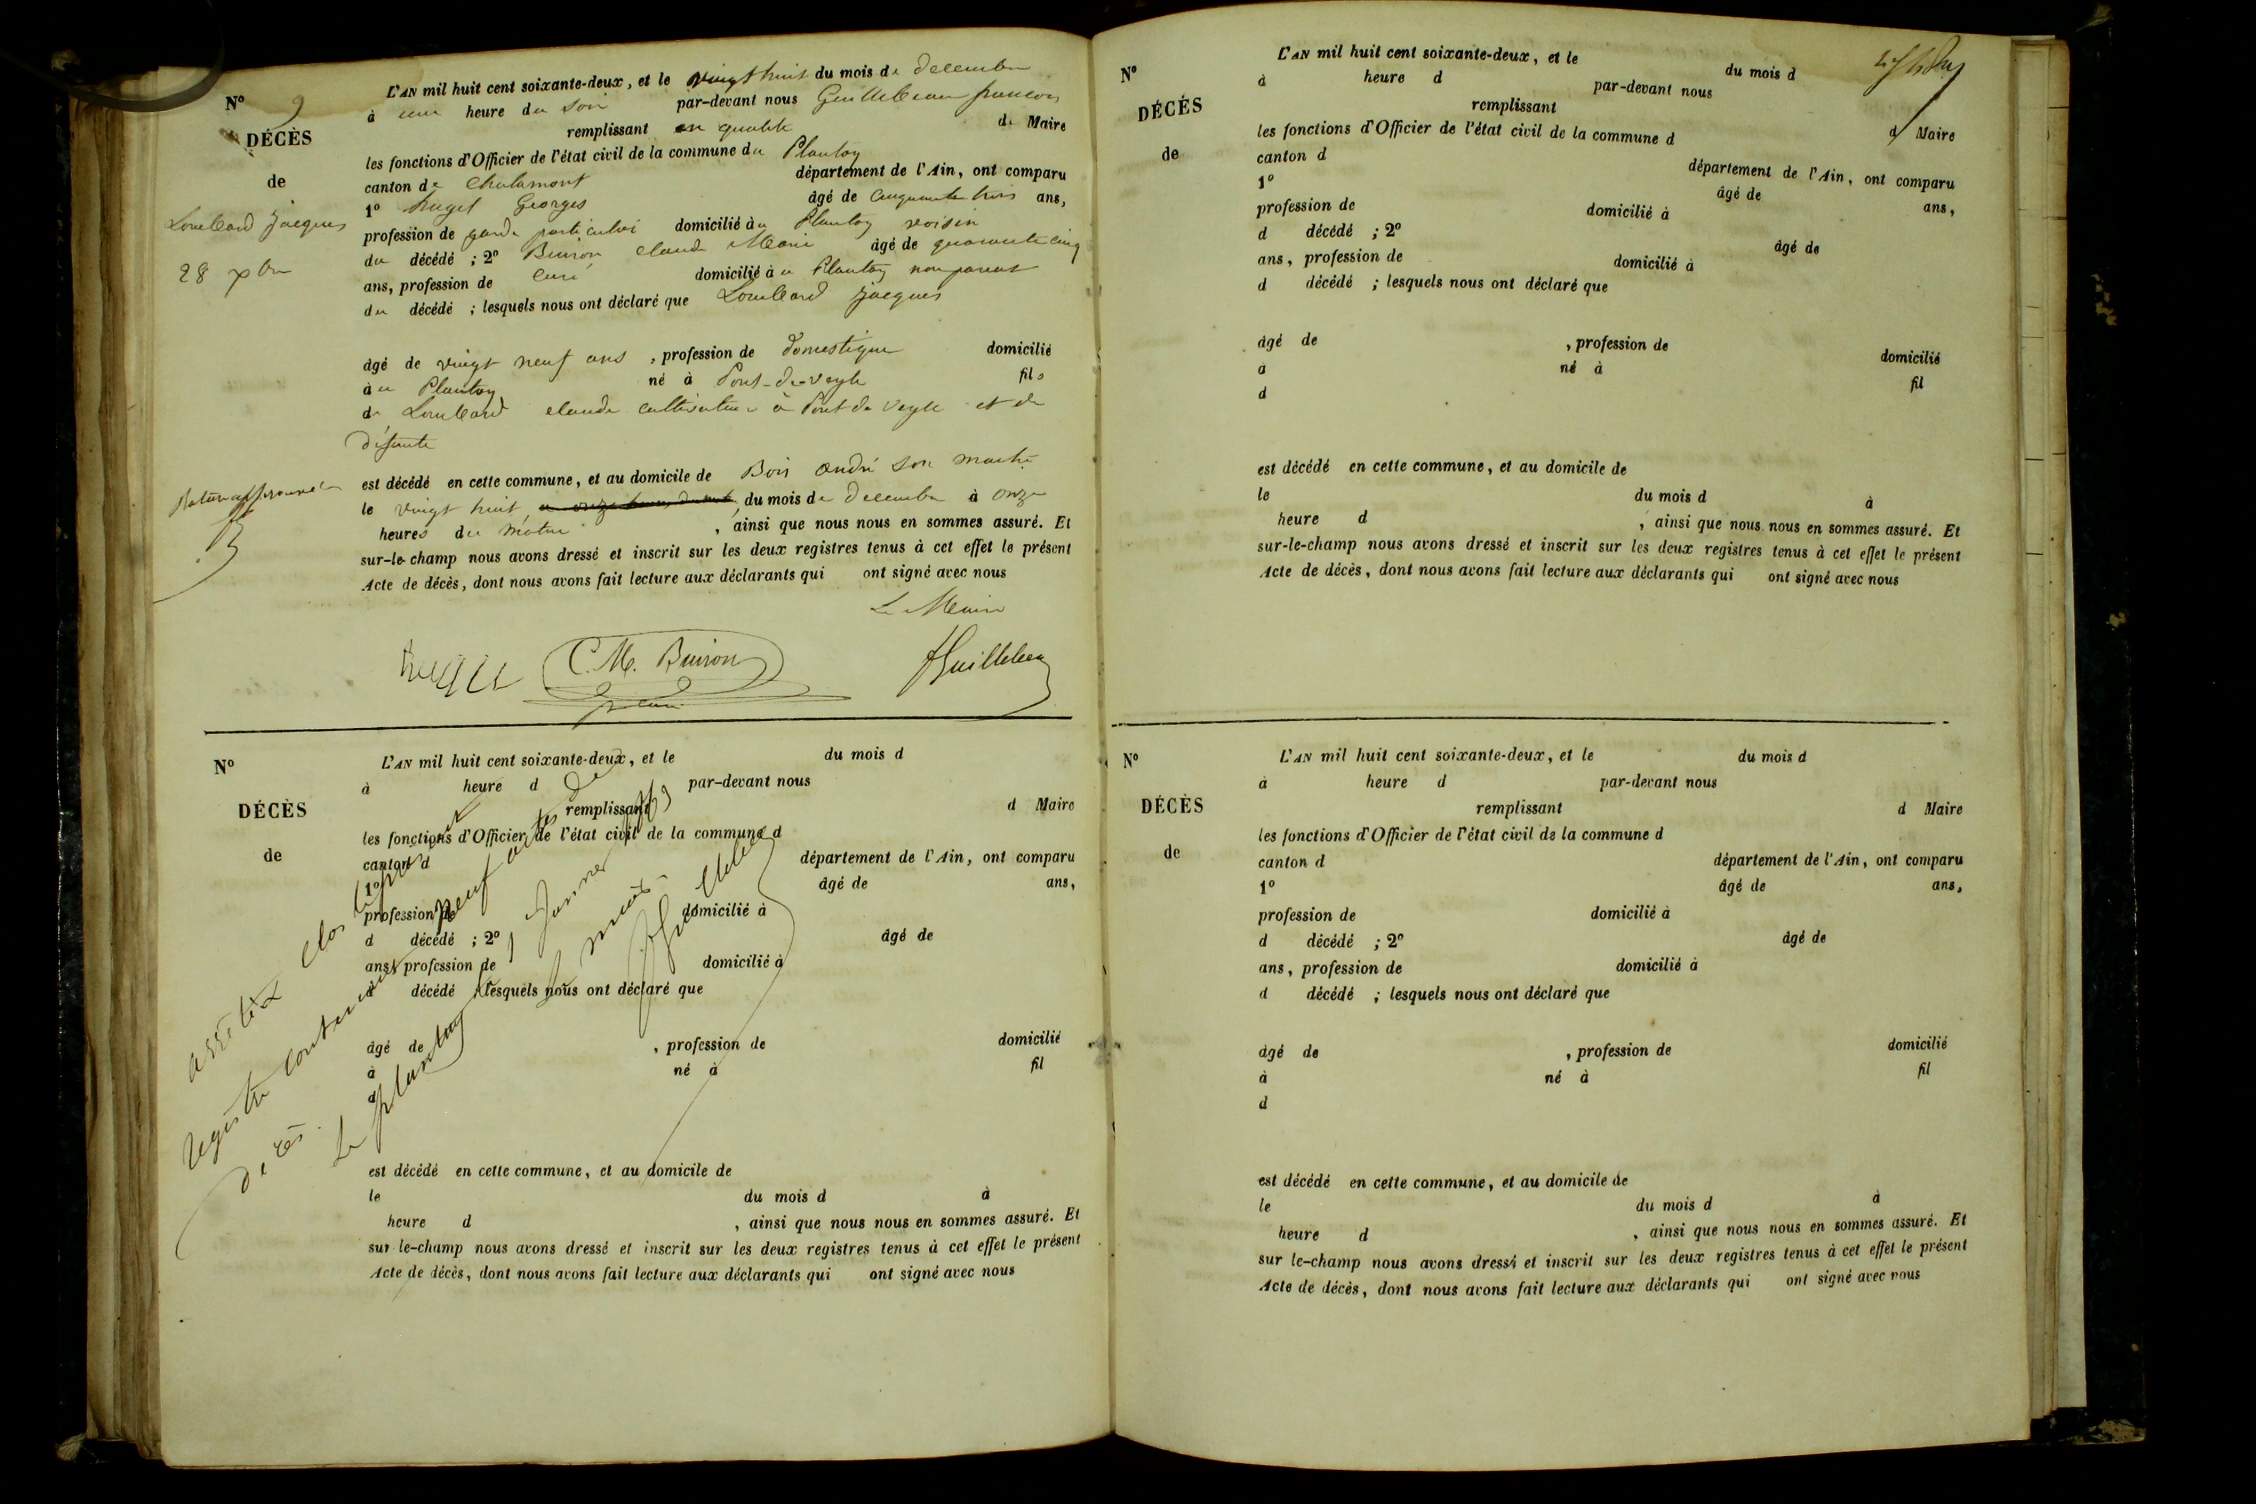 N° 9
DÉCÈS
de
Lombard Jacques
28 xbre
L'AN mil huit cent soixante-deux, et le vingt huit du mois de decembre
à une heure du soir par-devant nous Guillebeau francois
remplissant en qualité de Maire
les fonctions d'Officier de l'état civil de la commune du Plantay
canton de Chalamont département de l'Ain, ont comparu
1° huget Georges âgé de cinquante trois ans,
profession de garde particulier domicilié au Plantay voisin
du décédé ; 2° Buiron claude Marie âgé de quarante cinq
ans, profession de curé domicilié à u Plantay non parent
du décédé ; lesquels nous ont déclaré que Lombard Jacques
âgé de vingt neuf ans , profession de domestique domicilié
à u Plantay né à Pont-de-veyle fils
de Lombard claude cultivateur à Pont de Veyle et de
défunte
est décédé en cette commune, et au domicile de Bois andré son maitre
le vingt huit du mois de decembre à onze
heures du matin , ainsi que nous nous en sommes assuré. Et
sur-le-champ nous avons dressé et inscrit sur les deux registres tenus à cet effet le présent
Acte de décès, dont nous avons fait lecture aux déclarants qui ont signé avec nous
Le Maire
huget C. M. Buiron fGuillebeau
curé
N°
DÉCÈS
de
L'AN mil huit cent soixante-deux, et le du mois d
à heure d par-devant nous
remplissant d Maire
les fonctions d'Officier de l'état civil de la commune d
canton d département de l'Ain, ont comparu
1° âgé de ans,
profession de domicilié à
d décédé ; 2° âgé de
ans, profession de domicilié à
d décédé ; lesquels nous ont déclaré que
âgé de , profession de domicilié
à né à fil
d
est décédé en cette commune, et au domicile de
le du mois d à
heure d , ainsi que nous nous en sommes assuré. Et
sur-le-champ nous avons dressé et inscrit sur les deux registres tenus à cet effet le présent
Acte de décès, dont nous avons fait lecture aux déclarants qui ont signé avec nous
arrêté & clos le présent
registre contenant neuf actes de
décès.
Le plantay 1 Janvier 1863
Le maire
fGuillebeau
N°
DÉCÈS
de
L'AN mil huit cent soixante-deux, et le du mois d
à heure d par-devant nous
remplissant d Maire
les fonctions d'Officier de l'état civil de la commune d
canton d département de l'Ain, ont comparu
1° âgé de ans,
profession de domicilié à
d décédé ; 2° âgé de
ans, profession de domicilié à
d décédé ; lesquels nous ont déclaré que
âgé de , profession de domicilié
à né à fil
d
est décédé en cette commune, et au domicile de
le du mois d à
heure d , ainsi que nous nous en sommes assuré. Et
sur-le-champ nous avons dressé et inscrit sur les deux registres tenus à cet effet le présent
Acte de décès, dont nous avons fait lecture aux déclarants qui ont signé avec nous
N°
DÉCÈS
de
L'AN mil huit cent soixante-deux, et le du mois d
à heure d par-devant nous
remplissant d Maire
les fonctions d'Officier de l'état civil de la commune d
canton d département de l'Ain, ont comparu
1° âgé de ans,
profession de domicilié à
d décédé ; 2° âgé de
ans, profession de domicilié à
d décédé ; lesquels nous ont déclaré que
âgé de , profession de domicilié
à né à fil
d
est décédé en cette commune, et au domicile de
le du mois d à
heure d , ainsi que nous nous en sommes assuré. Et
sur le-champ nous avons dressé et inscrit sur les deux registres tenus à cet effet le présent
Acte de décès, dont nous avons fait lecture aux déclarants qui ont signé avec nous